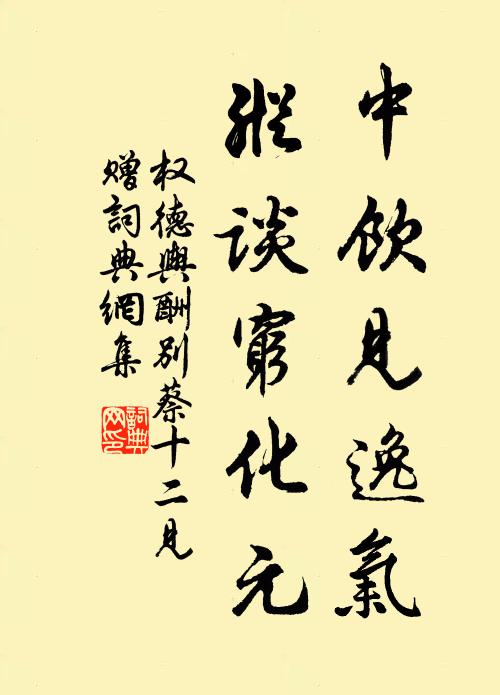 中飲見逸氣
縱談窮化元
权德輿酬别蔡十二見
赠詞典網集
詞典
网印